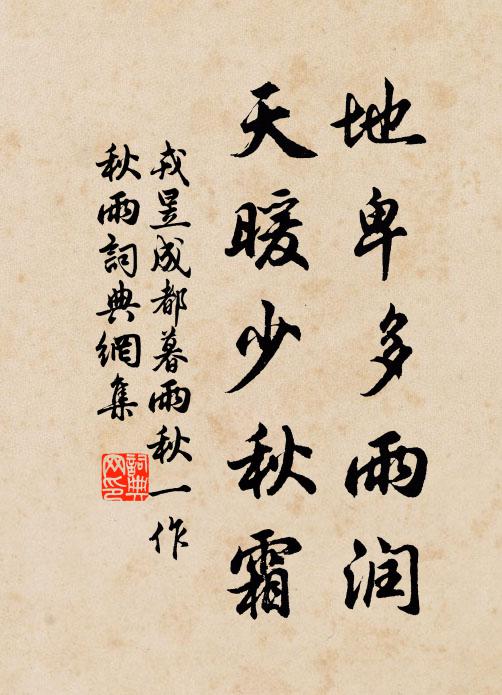 地卑多雨润
天暖少秋霜
戎昱成都暮雨秋一作
秋雨詞典網集
詞典网印